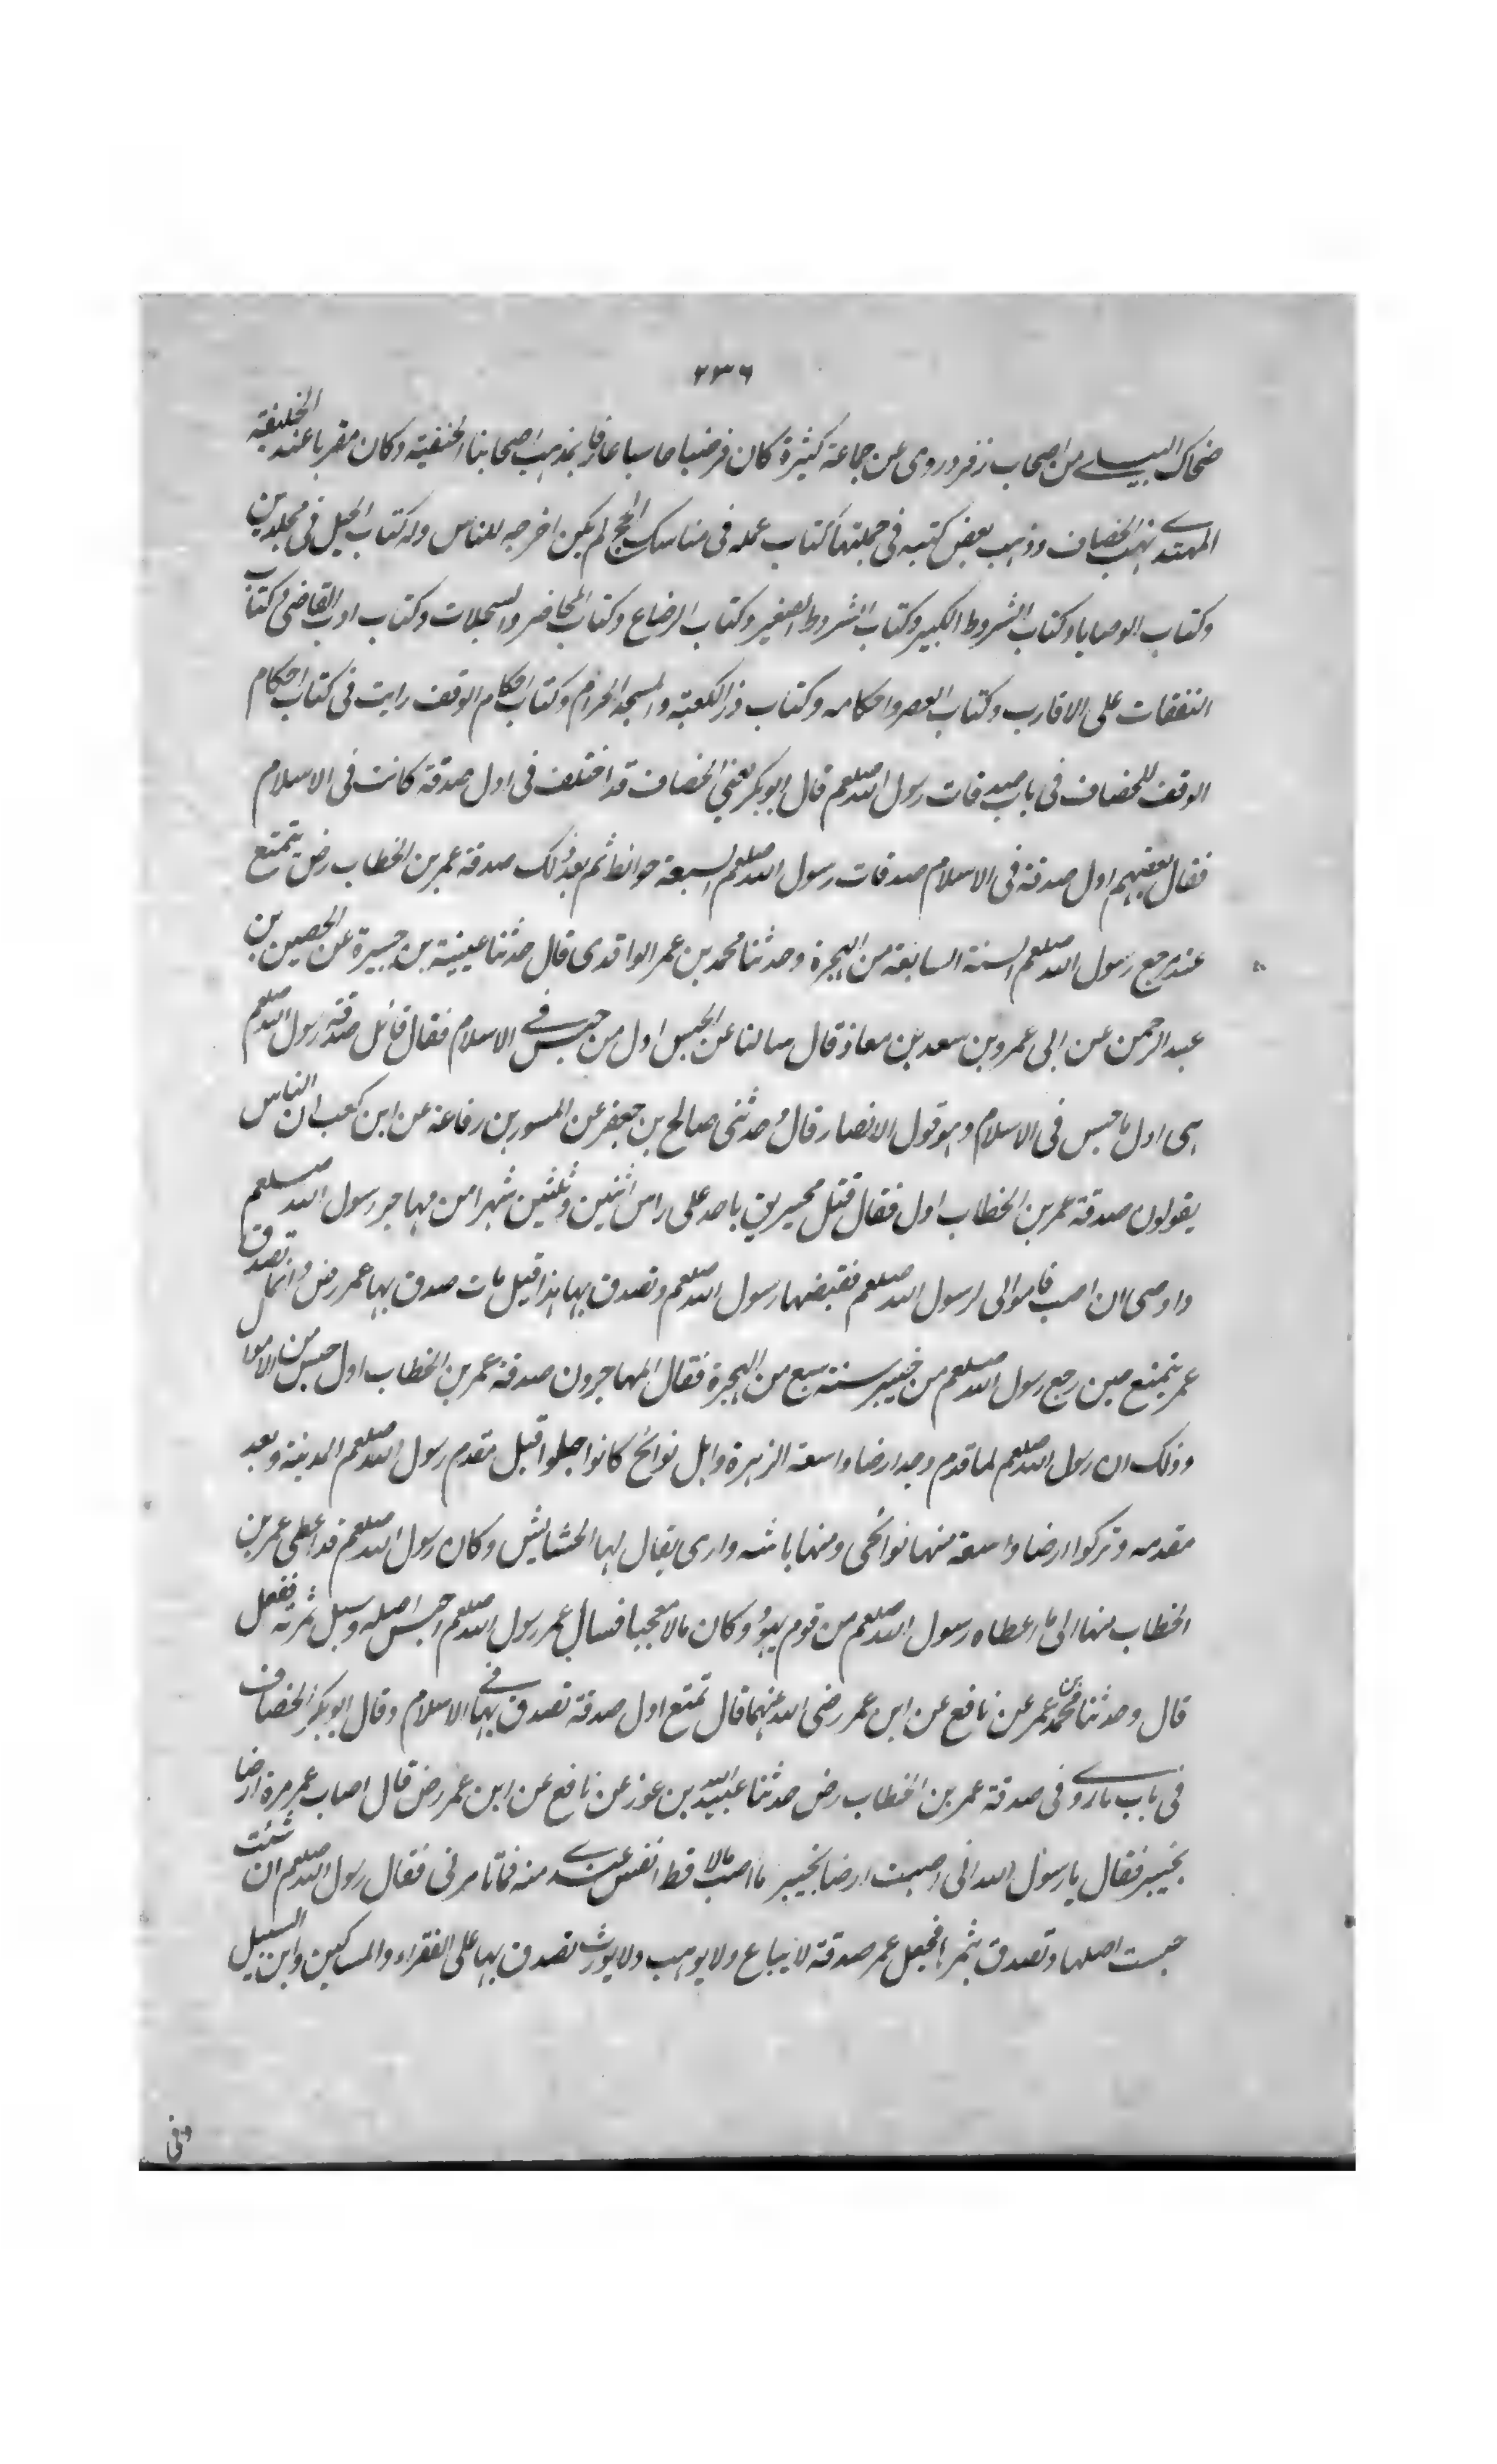 ٢٣٦
ضحاك البيلے من اصحاب زفر وروى عن جماعة كثيرة كان فرضيا حاسبا عارفا بمذهب اصحابنا الحنفية وكان مقربا عند الخليفة
المهتدے نهب الخصاف وذهب بعض كتبه فى جملتها كتاب عمله فى مناسك الحج لم يكن اخرجه للناس وله كتاب الحيل فى مجلدين
وكتاب الوصايا وكتاب الشروط الكبير وكتاب الشروط الصغير وكتاب الرضاع وكتاب المحاضر والسجلات وكتاب ادب القاضى وكتاب
النفقات على الاقارب وكتاب العصر واحكامه وكتاب ذرع الكعبة والمسجد الحرام وكتاب احكام الوقف رايت فى كتاب احكام
الوقف للخصاف فى باب صدقات رسول الله صلعم قال ابو بكر يعنى الخصاف قد اختلف فى اول صدقة كانت فى الاسلام
فقال بعضهم اول صدقة فى الاسلام صدقات رسول الله صلعم السبعة حوائط ثم بعد ذلك صدقة عمر بن الخطاب رض بثمغ
عند مرجع رسول الله صلعم السنة السابعة من الهجرة وحدثنا محمد بن عمر الواقدى قال حدثنا عيينة بن جبيرة عن الحصين بن
عبد الرحمن عن ابى عمرو بن سعد بن معاذ قال سالنا عن الحبس اول من حبس فے الاسلام فقال قائل صدقة رسول الله صلعم
هى اول ما حبس فى الاسلام وهو قول الانصار قال وحدثنى صالح بن جعفر عن المسور بن رفاعة عن ابن كعب ان الناس
يقولون صدقة عمر بن الخطاب اول فقال قتل مخيريق باحد على راس اثنين وثلثين شهرا من مهاجر رسول الله صلعم
واوصى ان اصبت فاموالى لرسول الله صلعم فقبضها رسول الله صلعم وتصدق بها هذا قبل مات صدق بها عمر رض وانما تصدق
عمر بتمتع حين رجع رسول الله صلعم من خيبر سنة سبع من الهجرة فقال المهاجرون صدقة عمر بن الخطاب اول حبس من الاموال
وذلك ان رسول الله صلعم لما قدم وجد ارضا واسعة الزهرة واهل نوائح كانوا جلوا قبل مقدم رسول الله صلعم المدينة وبعد
مقدمه وتركوا ارضا واسعة منها نوائحى ومنها باشه وارى يقال لها الحشائش وكان رسول الله صلعم قد اعطى عمر بن
الخطاب منها الى ما اعطاه رسول الله صلعم من قوم يهود وكان مالا معجبا فسال عمر رسول الله صلعم احبس اصله وسبل ثمرته ففعل
قال وحدثنا محمد بن عمر عن نافع عن ابن عمر رضى الله عنهما قال تمتع اول صدقة تصدق بها فے الاسلام وقال ابو بكر الخصاف
فى باب ما روے فى صدقة عمر بن الخطاب رض حدثنا عبيد الله بن عوز عن نافع عن ابن عمر رض قال اصاب عمر مرة ارضا
بخيبر فقال يا رسول الله انى اصبت ارضا بخيبر ما اصبت مالا قط انفس عندے منه فما تامرنى فقال رسول الله صلعم ان شئت
حبست اصلها وتصدق بثمرها فجعل عمر صدقة لا يباع ولا يوهب ولا يورث تصدق بها على الفقراء والمسكين وابن السبيل
وفى